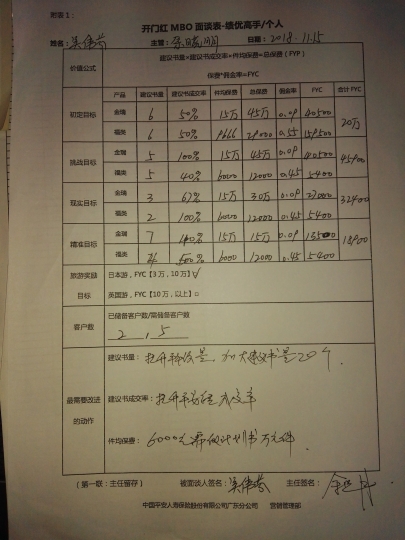 附表1:
开门红 MBO 面谈表-绩优高手/个人
姓名: 吴伟芬 主管: 日期: 2018.11.15
价值公式 建议书量×建议书成交率×件均保费=总保费（FYP）
保费*佣金率=FYC
产品 建议书量 建议书成交率 件均保费 总保费 佣金率 FYC 合计 FYC
初定目标 金瑞 6 50% 15万 45万 0.09 40500 20万
福类 6 50% 0.55 159500
挑战目标 金瑞 5 100% 15万 45万 0.09 40500 45900
福类 5 40% 6000 12000 0.45 5400
现实目标 金瑞 3 67% 15万 30万 0.09 27000 32400
福类 2 100% 6000 12000 0.45 5400
精准目标 金瑞 15万 15万 0.09 13500 18900
福类 6000 12000 0.45 5400
旅游奖励 日本游，FYC【3万，10万】√
目标 英国游，FYC【10万，以上】□
客户数 已储备客户数/需储备客户数
2 , 5
建议书量: 加大建议书量20个.
最需要改进的动作 建议书成交率: 提升 成交率
件均保费: 6000元
（第一联：主任留存） 被面谈人签名: 吴伟芬 主任签名:
中国平安人寿保险股份有限公司广东分公司 营销管理部